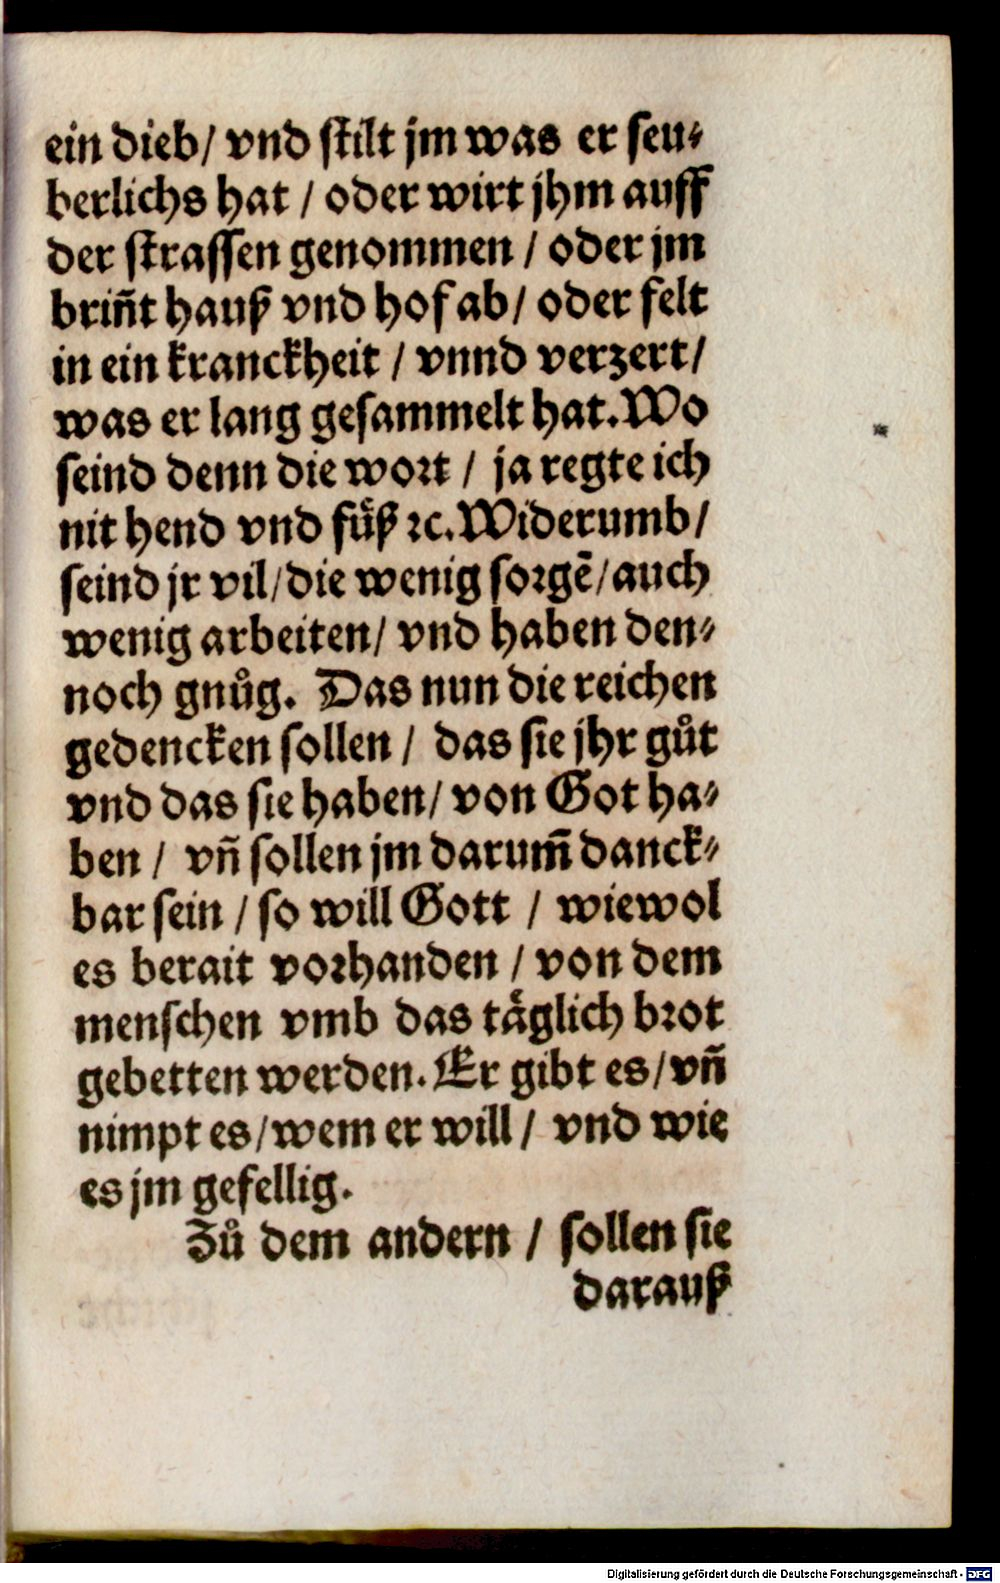 ein dieb/ vnd stilt jm was er seu⸗
berlichs hat / oder wirt jhm auff
der strassen genommen / oder jm
briñt hauß vnd hof ab/ oder felt
in ein kranckheit / vnnd verzert/
was er lang gesammelt hat. Wo
seind denn die wort / ja regte ich
nit hend vnd fuͤß ꝛc. Widerumb/
seind jr vil/die wenig sorgẽ/auch
wenig arbeiten/ vnd haben den⸗
noch gnuͦg. Das nun die reichen
gedencken sollen / das sie jhr guͦt
vnd das sie haben/ von Got ha⸗
ben / vñ sollen jm darum̃ danck⸗
bar sein / so will Gott / wiewol
es berait vorhanden / von dem
menschen vmb das taͤglich brot
gebetten werden. Er gibt es/ vñ
nimpt es/wem er will/ vnd wie
es jm gefellig.
Zuͦ dem andern / sollen sie
darauß
Digitalisierung gefördert durch die Deutsche Forschungsgemeinschaft - DFG